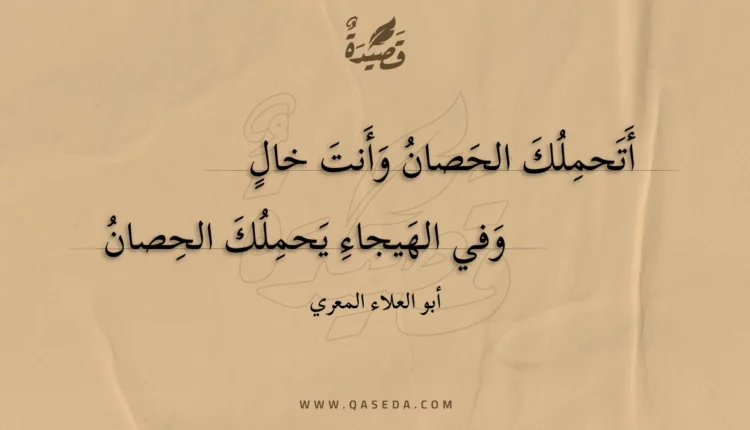 قَصِيدَةٌ
أَتَحمِلُكَ الحَصانُ وَأَنتَ خالٍ
وَفي الهَيجاءِ يَحمِلُكَ الحِصانُ
أبو العلاء المعري
WWW.QASEDA.COM